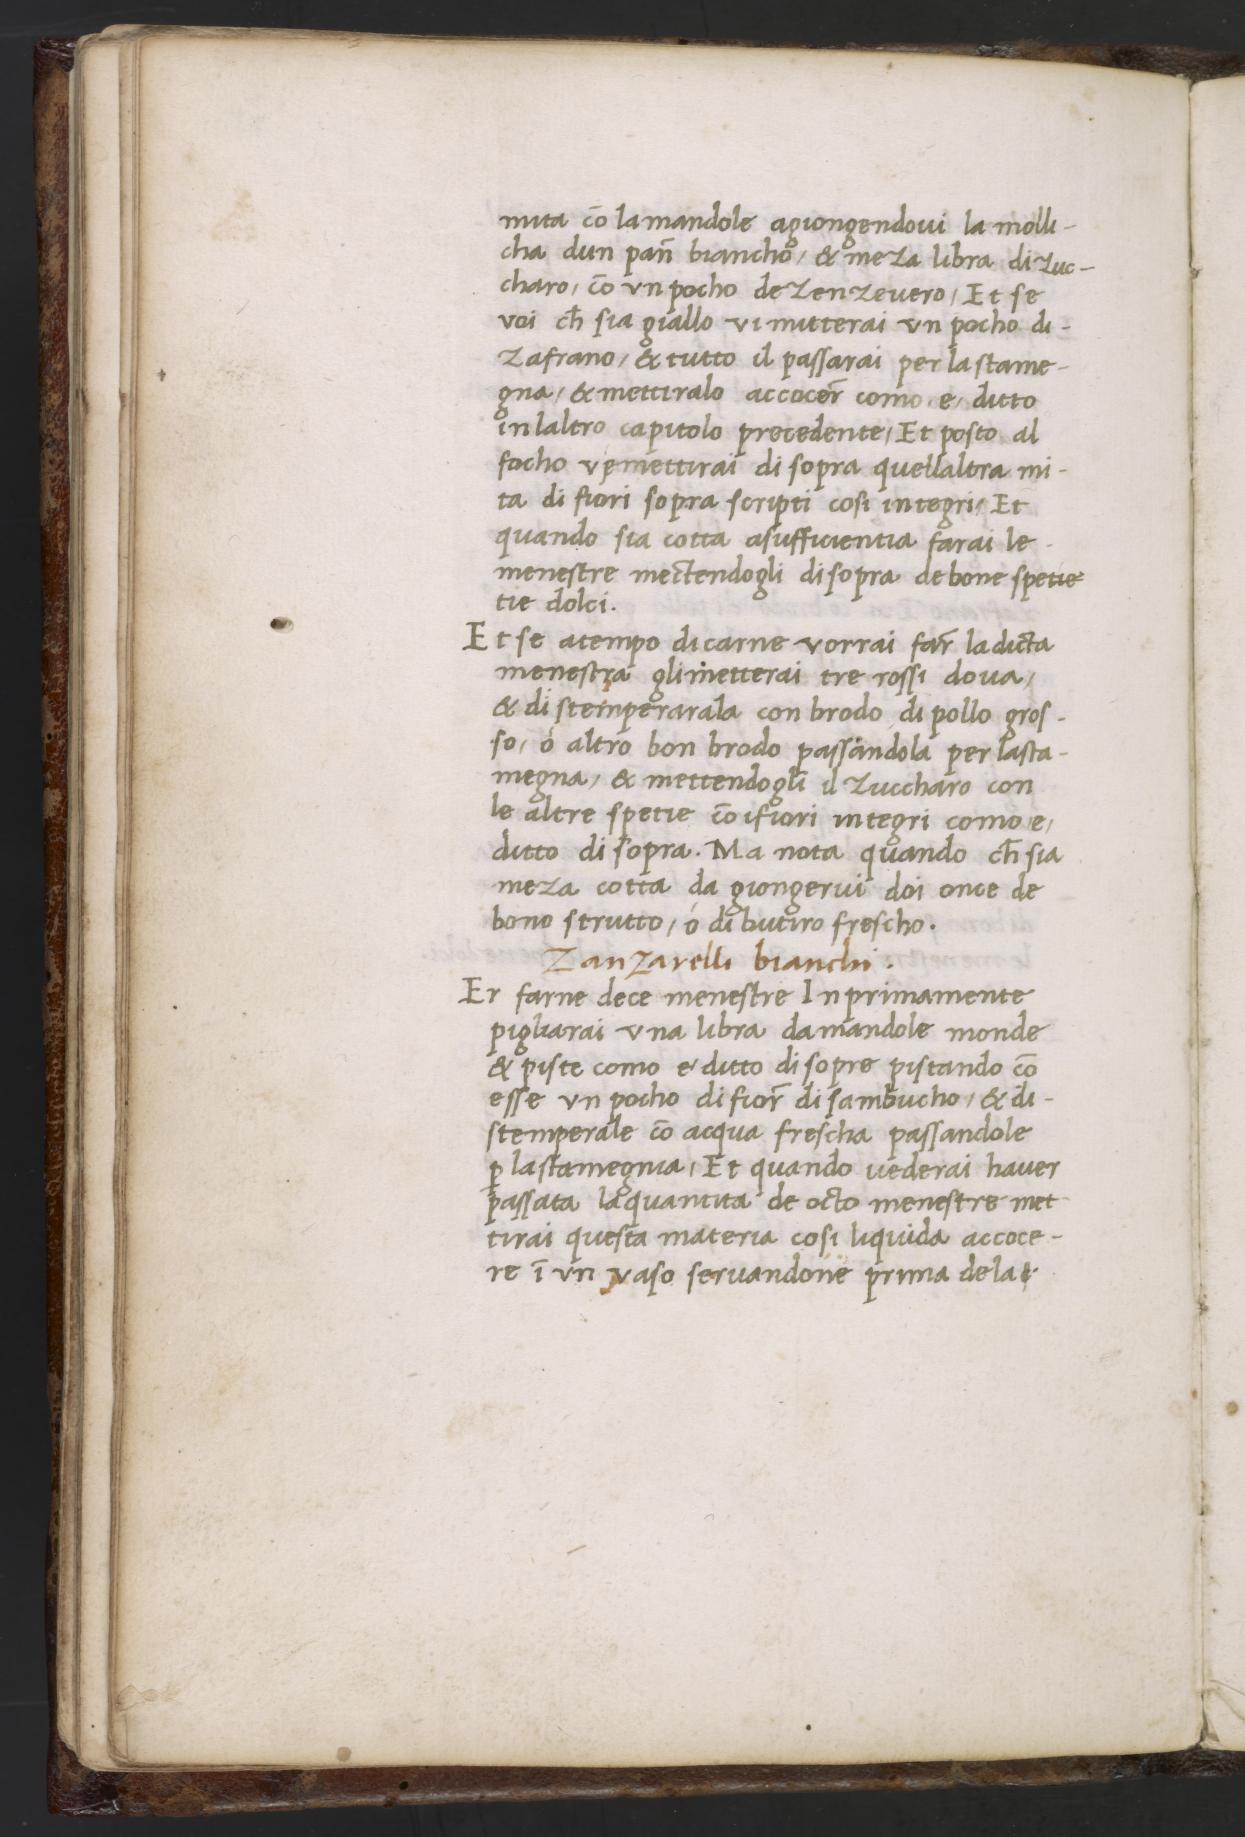 mita cō lamandole agiongendoui la molli-
cha dun pañ biancho, & meza libra di zuc-
charo, cō vn pocho de zenzeuero, Et se
voi ch̄ sia giallo vi mitterai vn pocho di-
zafrano, & tutto il passarai per la stame-
gna, & mettiralo accocer̄ como, e, ditto
inlaltro capitolo precedente, Et posto al
focho vemettirai di sopra quellaltra mi-
ta di fiori sopra scripti cosi integri, Et
quando sia cotta asufficientia farai le-
menestre mectendogli disopra debone spetie
tie dolci.
Et se atempo dicarne vorrai far̄ ladicta
menestra glimetterai tre rossi doua,
& distemperarala con brodo di pollo gros-
so, o altro bon brodo passandola per lasta-
megna, & mettendogli il zuccharo con
le altre spetie cō ifiori integri como, e,
ditto di sopra. Ma nota quando ch̄ sia
meza cotta da giongerui doi once de
bono strutto, o di butiro frescho.
Zanzarelli bianchi.
Er farne dece menestre Inprimamente
pigliarai vna libra damandole monde
& piste como e ditto di sopre pistando cō
esse vn pocho di fior̄ di sambucho, & di-
stemperale cō acqua frescha passandole
ꝑ lastamegnia, Et quando uederai hauer
passata laquantita de octo menestre met
tirai questa materia cosi liquida accoce-
re ī vn vaso seruandone prima dela